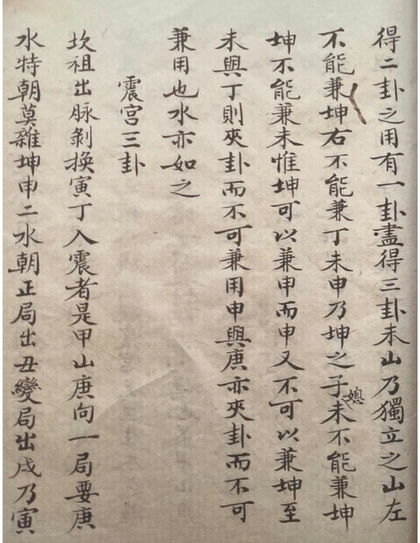 得二卦之用有一卦盡得三卦未山乃獨立之山左
不能兼坤右不能兼丁未申乃坤之子媳未不能兼坤
坤不能兼未惟坤可以兼申而申又不可以兼坤至
未與丁則夾卦而不可兼用申與庚亦夾卦而不可
兼用也水亦如之
震宮三卦
坎祖出脉剝換寅丁入震者是甲山庚向一局要庚
水特朝莫雜坤申二水朝正局出丑變局出戌乃寅